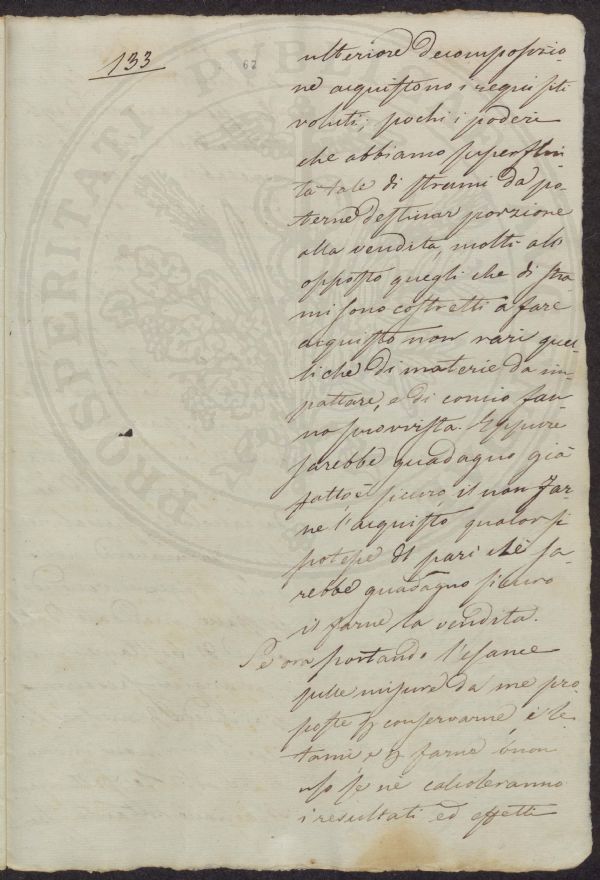 133
62
ulteriore decomposizio-
ne acquistono i requisiti
voluti; pochi i poderi
che abbiamo superflui
tà tale di strami da po-
terne destinar porzione
alla vendita, molti all'
opposto quegli che di stra
mi sono costretti a fare
acquisto non rari quel-
li che di materie da im-
pattare, e di concio fan-
no provvista. Eppure
sarebbe guadagno già
fatto e sicuro, il non far-
ne l'acquisto qualor si
potesse al pari che sa-
rebbe guadagno sicuro
il farne la vendita.
Se ora portando l'esame
sulle misure da me pro-
poste p conservarne i le-
tami e p farne buon
uso se ne calcoleranno
i resultati ed effetti
PROSPERITATI PVBLICAE